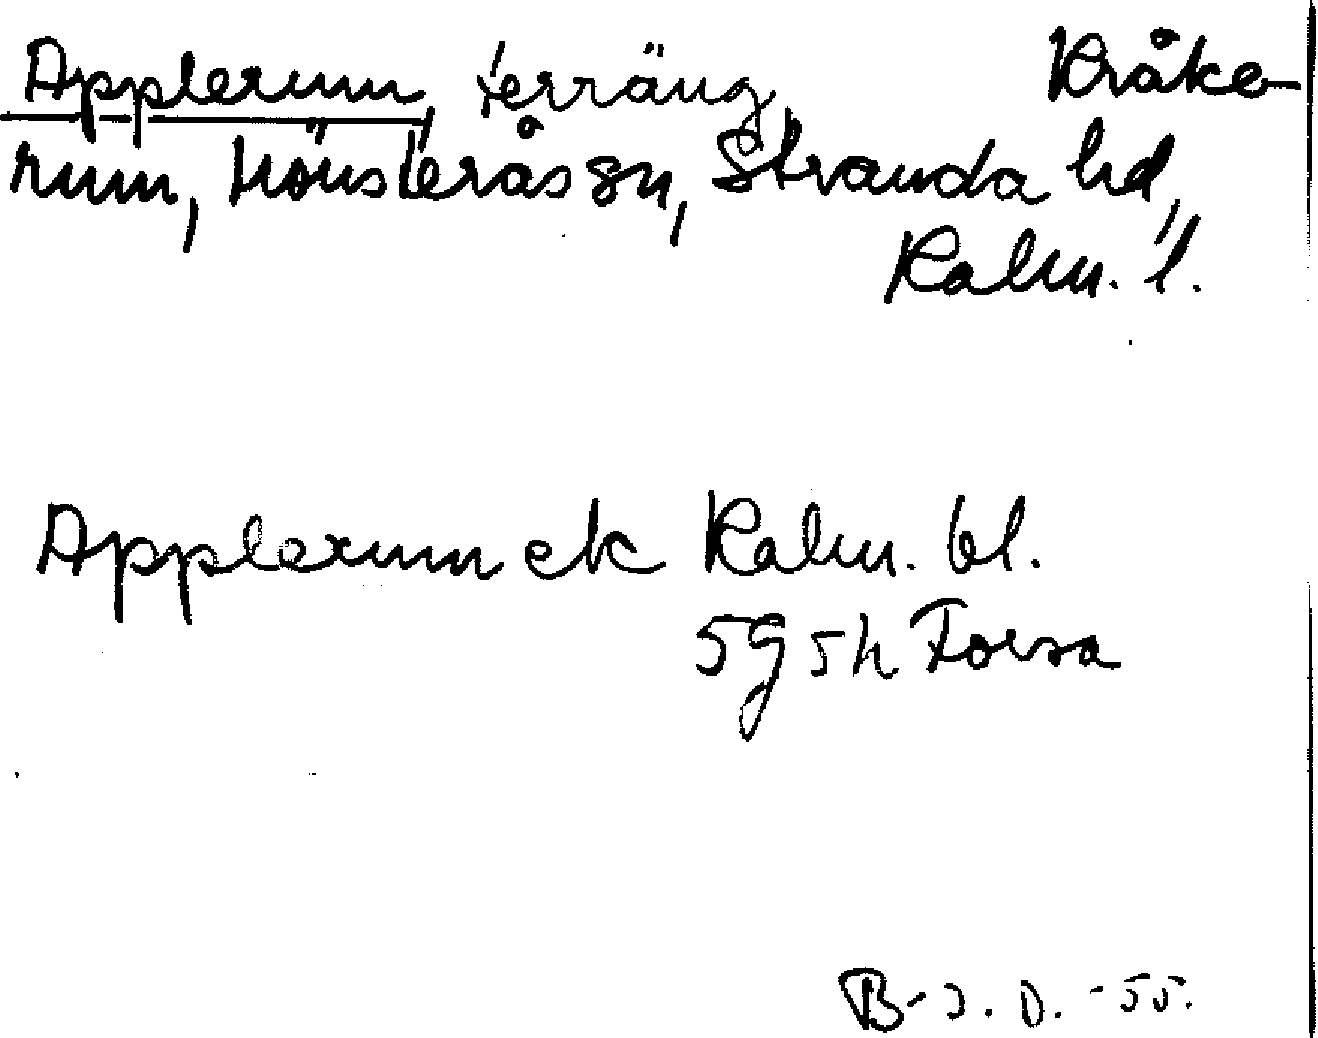 Applerum, terräng, Kråke-
rum, Mönsterås sn, Stranda hd,
Kalm. l.
Applerum ek Kalm. bl.
5g 5h Forsa
B-J. D. -55.